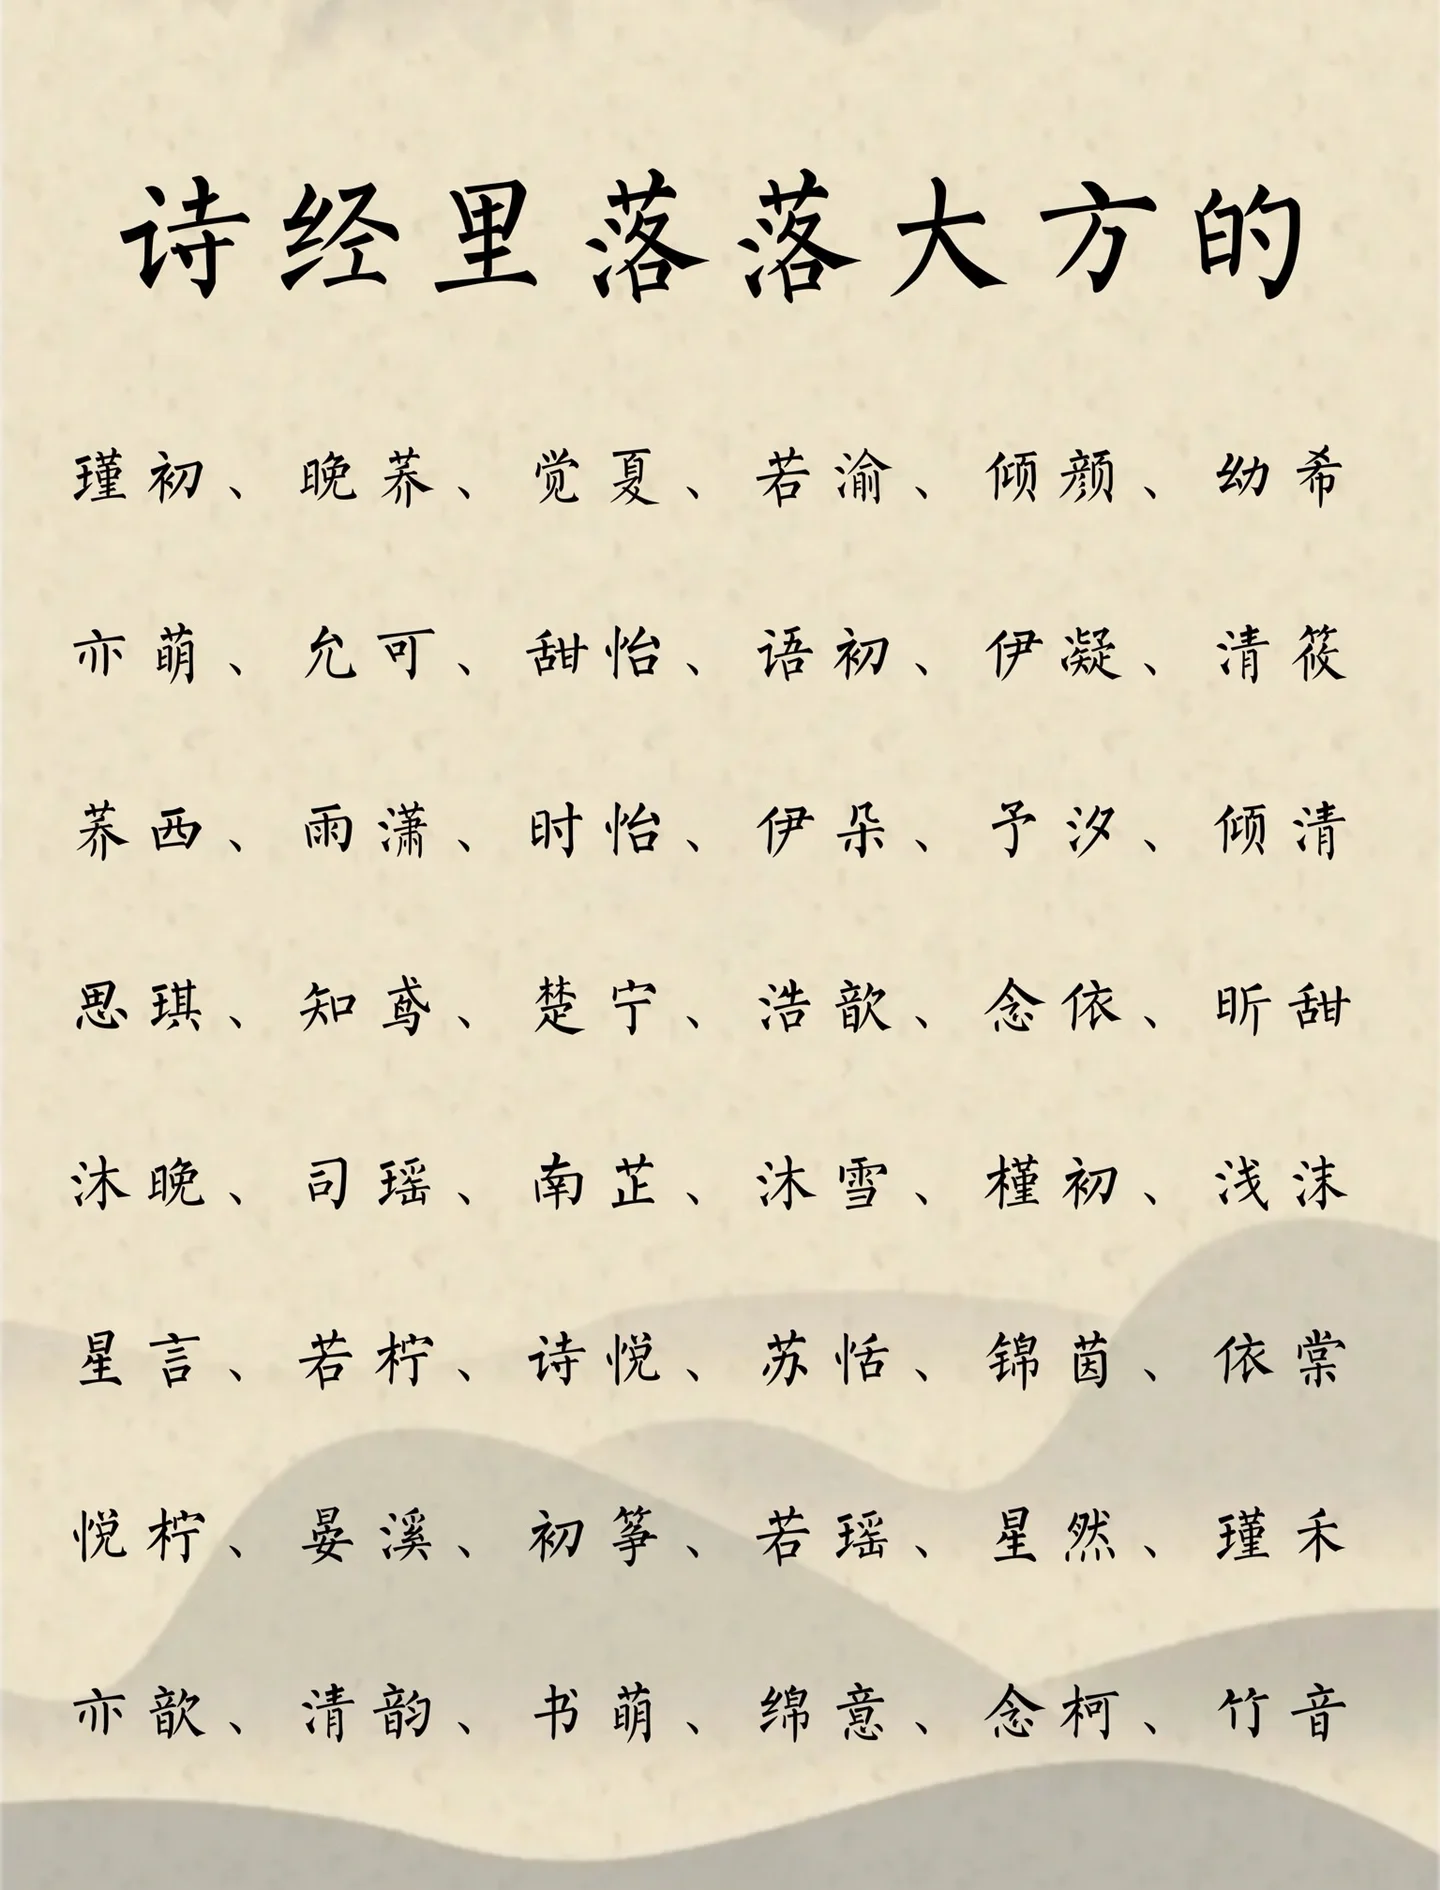 诗经里落落大方的
瑾初、晚荞、觉夏、若渝、倾颜、幼希
亦萌、允可、甜怡、语初、伊凝、清筱
荞西、雨潇、时怡、伊朵、予汐、倾清
思琪、知鸢、楚宁、浩歆、念依、昕甜
沐晚、司瑶、南芷、沐雪、槿初、浅沫
星言、若柠、诗悦、苏恬、锦茵、依棠
悦柠、晏溪、初筝、若瑶、星然、瑾禾
亦歆、清韵、书萌、绵意、念柯、竹音